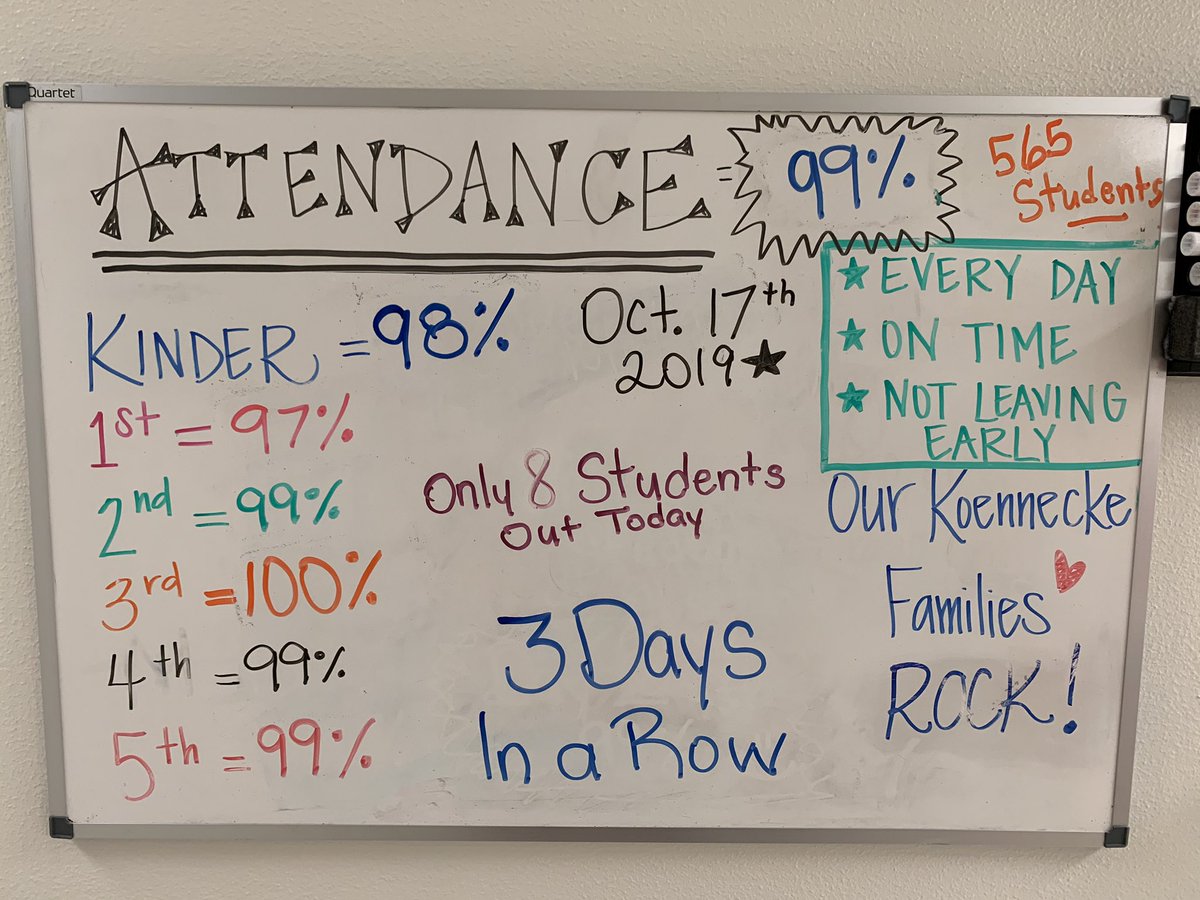 Quartet
ATTENDANCE = 99%
565
Students
KINDER = 98%
1st = 97%
2nd = 99%
3rd = 100%
4th = 99%
5th = 99%
Oct. 17th
2019
Only 8 Students
Out Today
3 Days
In a Row
EVERY DAY
ON TIME
NOT LEAVING
EARLY
Our Koennecke
Families
ROCK!